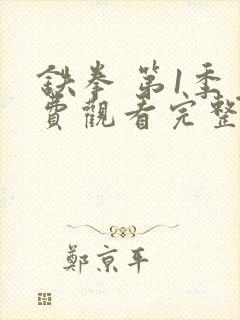 鐵拳 第1季
費觀看完整
鄭京平